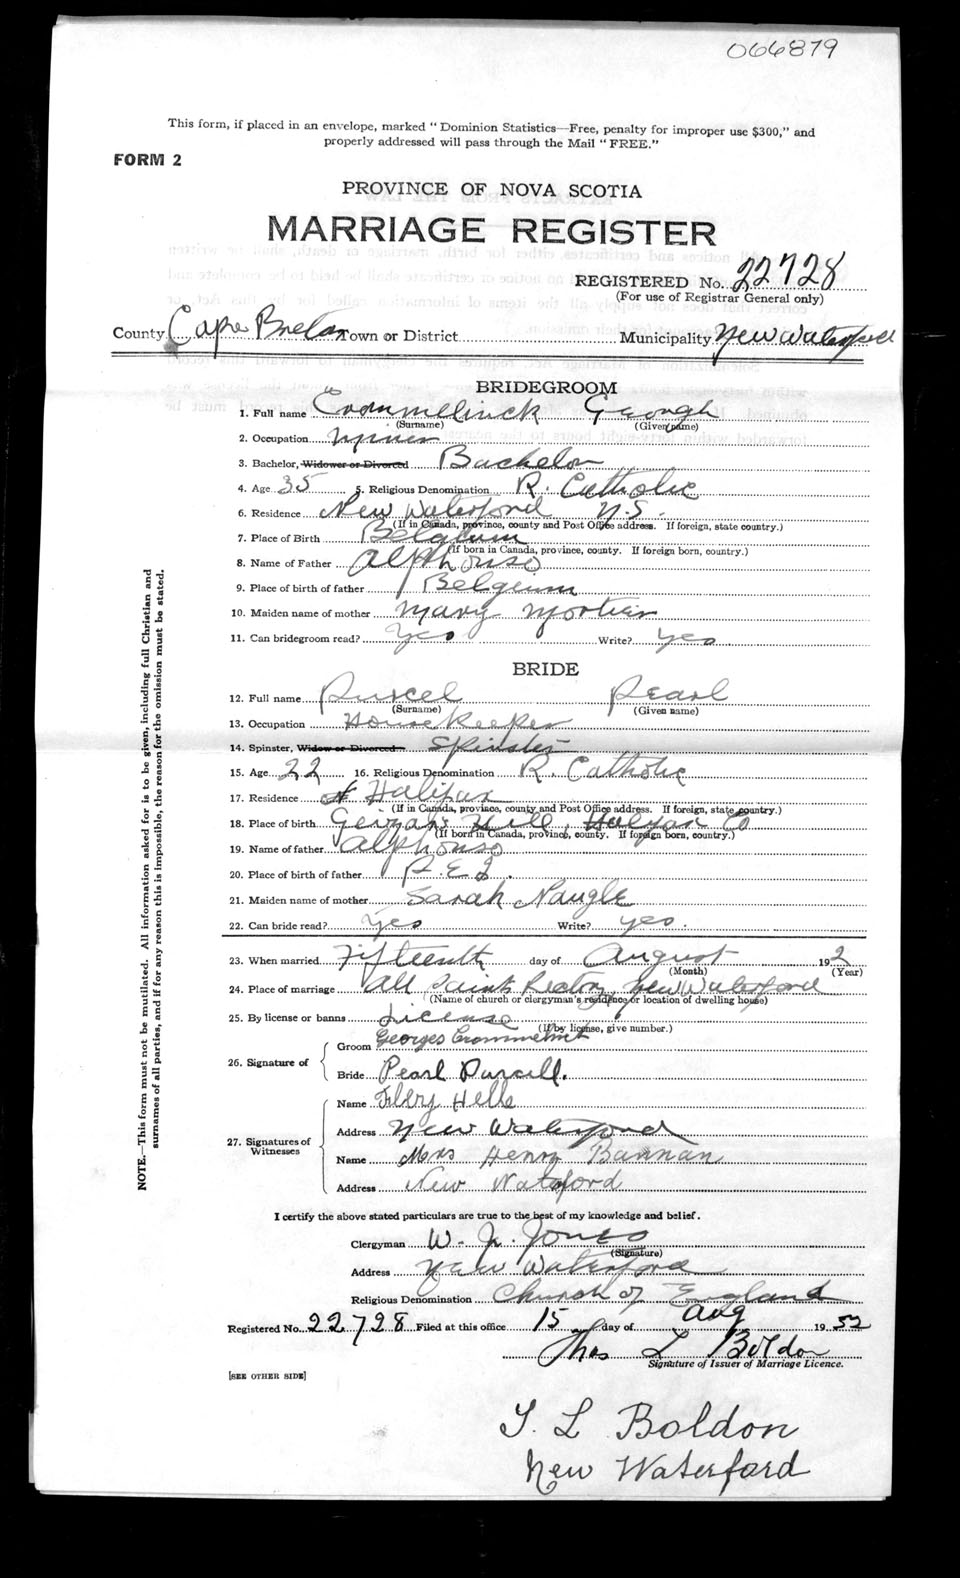 066879
This form, if placed in an envelope, marked "Dominion Statistics—Free, penalty for improper use $300," and
properly addressed will pass through the Mail "FREE."
FORM 2
PROVINCE OF NOVA SCOTIA
MARRIAGE REGISTER
REGISTERED No. 22728
(For use of Registrar General only)
County Cape Breton Town or District Municipality New Waterford
BRIDEGROOM
1. Full name Crommelinck Georgh
(Surname) (Given name)
2. Occupation Miner
3. Bachelor, Widower or Divorced Bachelor
4. Age 35 5. Religious Denomination R. Catholic
6. Residence New Waterford N.S.
(If in Canada, province, county and Post Office address. If foreign, state country.)
7. Place of Birth Belgium
(If born in Canada, province, county. If foreign born, country.)
8. Name of Father Alphonso
9. Place of birth of father Belgium
10. Maiden name of mother Mary Mortier
11. Can bridegroom read? Yes Write? Yes
BRIDE
12. Full name Purcel Pearl
(Surname) (Given name)
13. Occupation Housekeeper
14. Spinster, Widow or Divorced Spinster
15. Age 22 16. Religious Denomination R. Catholic
17. Residence Halifax
(If in Canada, province, county and Post Office address. If foreign, state country.)
18. Place of birth Hill, Halifax Co
(If born in Canada, province, county. If foreign born, country.)
19. Name of father Alphonso
20. Place of birth of father P.E.I.
21. Maiden name of mother Sarah Naugle
22. Can bride read? Yes Write? yes.
23. When married Fifteenth day of August 192
(Month) (Year)
24. Place of marriage All Saints Rectory, New Waterford
(Name of church or clergyman's residence or location of dwelling house)
25. By license or banns License
(If by license, give number.)
26. Signature of
Groom Georges Crommelinck
Bride Pearl Purcell.
27. Signatures of Witnesses
Name Hells
Address New Waterford
Name Mrs Henry Bannan
Address New Waterford
I certify the above stated particulars are true to the best of my knowledge and belief.
Clergyman W. J. Jones
(Signature)
Address New Waterford
Religious Denomination Church of England
Registered No. 22728 Filed at this office 15 day of Aug 1952
Thos L Boldon
Signature of Issuer of Marriage Licence.
[SEE OTHER SIDE]
T. L Boldon
New Waterford
NOTE.—This form must not be mutilated. All information asked for is to be given, including full Christian and
surnames of all parties, and if for any reason this is impossible, the reason for the omission must be stated.